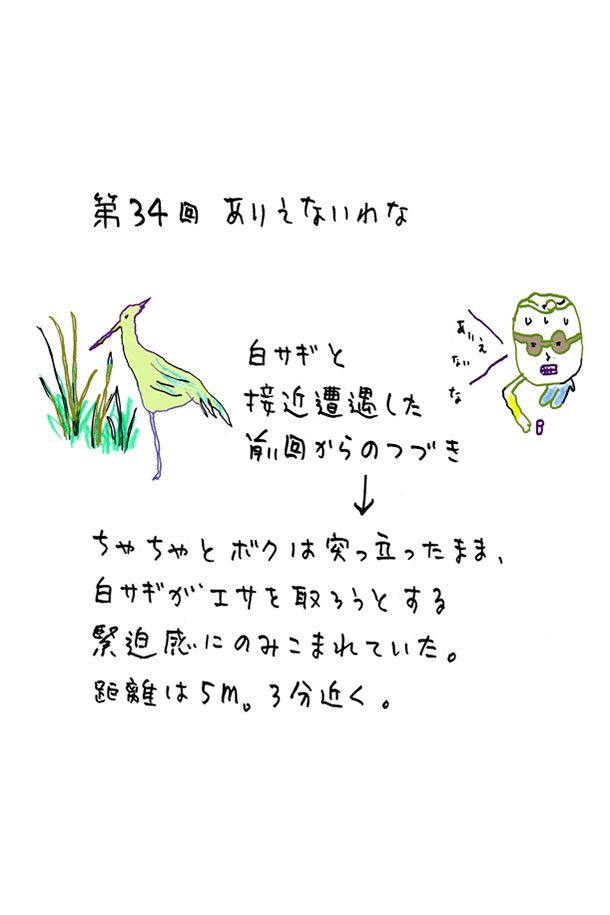 第34回 ありえないわな
白サギと
接近遭遇した
前回からのつづき
ありえ
ない
な
ちゃちゃとボクは突っ立ったまま、
白サギがエサを取ろうとする
緊迫感にのみこまれていた。
距離は5m。3分近く。